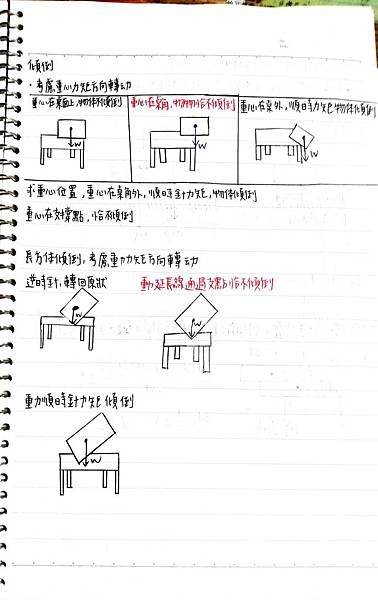 傾倒
·考慮重心力矩方向轉动
重心在桌面上,物体不傾倒
重心在桌角,物体恰不傾倒
重心在桌外,順時力矩物体傾倒
W
W
W
求重心位置,重心在桌角外,順時針力矩,物体傾倒
重心在支撐點,恰不傾倒
長方体傾倒,考慮重力力矩方向轉动
逆時針,轉回原狀
重力延長線通過支點恰不傾倒
W
W
重力順時針力矩傾倒
W